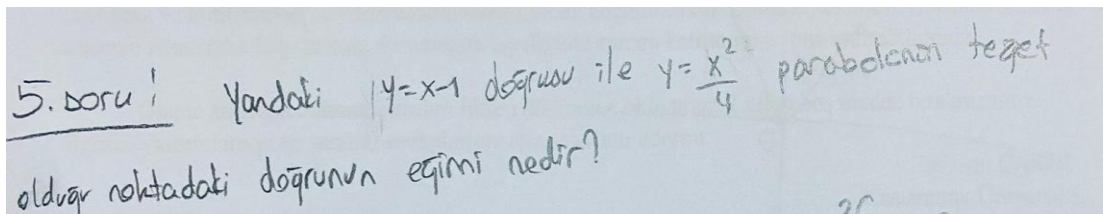 5. soru! Yandaki y=x-1 doğrusu ile y=x²/4 parabolünün teğet
olduğu noktadaki doğrunun eğimi nedir?